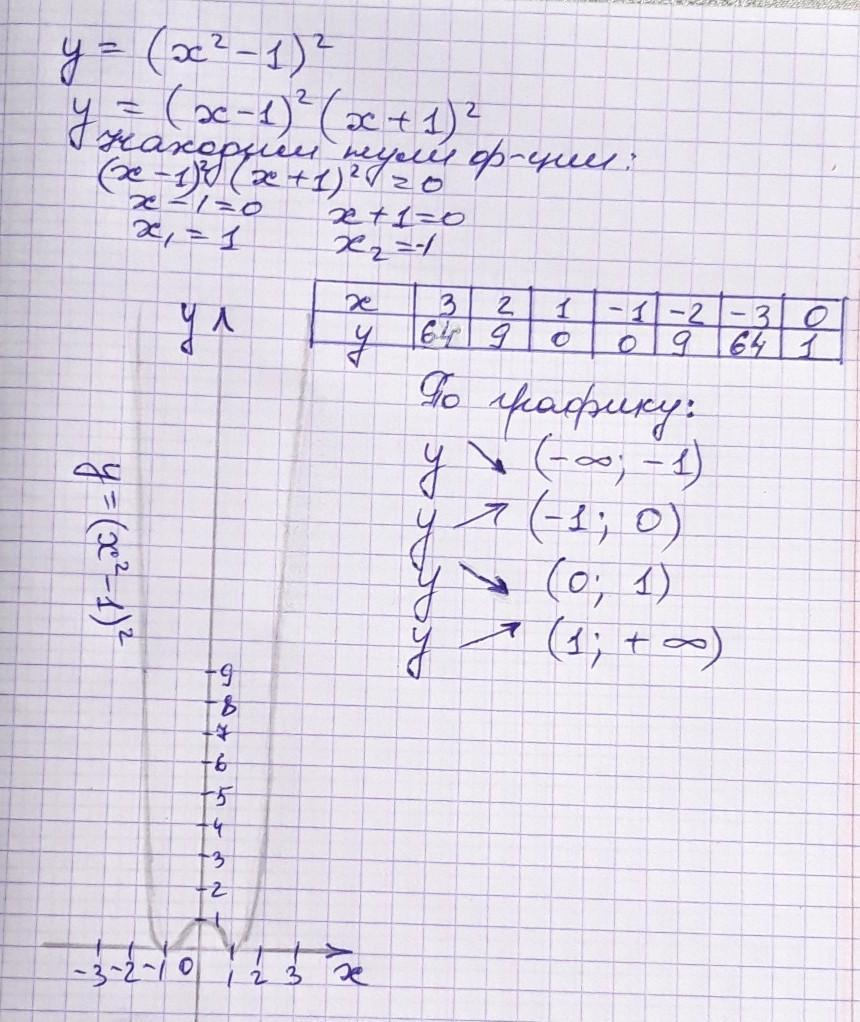 y = (x² - 1)²
y = (x-1)² (x+1)²
находим нули ф-ции:
(x-1)² (x+1)² = 0
x-1=0 x+1=0
x₁ = 1 x₂ = -1
x 3 2 1 -1 -2 -3 0
y 64 9 0 0 9 64 1
y
По графику:
y ↘ (-∞; -1)
y ↗ (-1; 0)
y ↘ (0; 1)
y ↗ (1; +∞)
y = (x²-1)²
9
8
7
6
5
4
3
2
1
-3 -2 -1 0 1 2 3 x